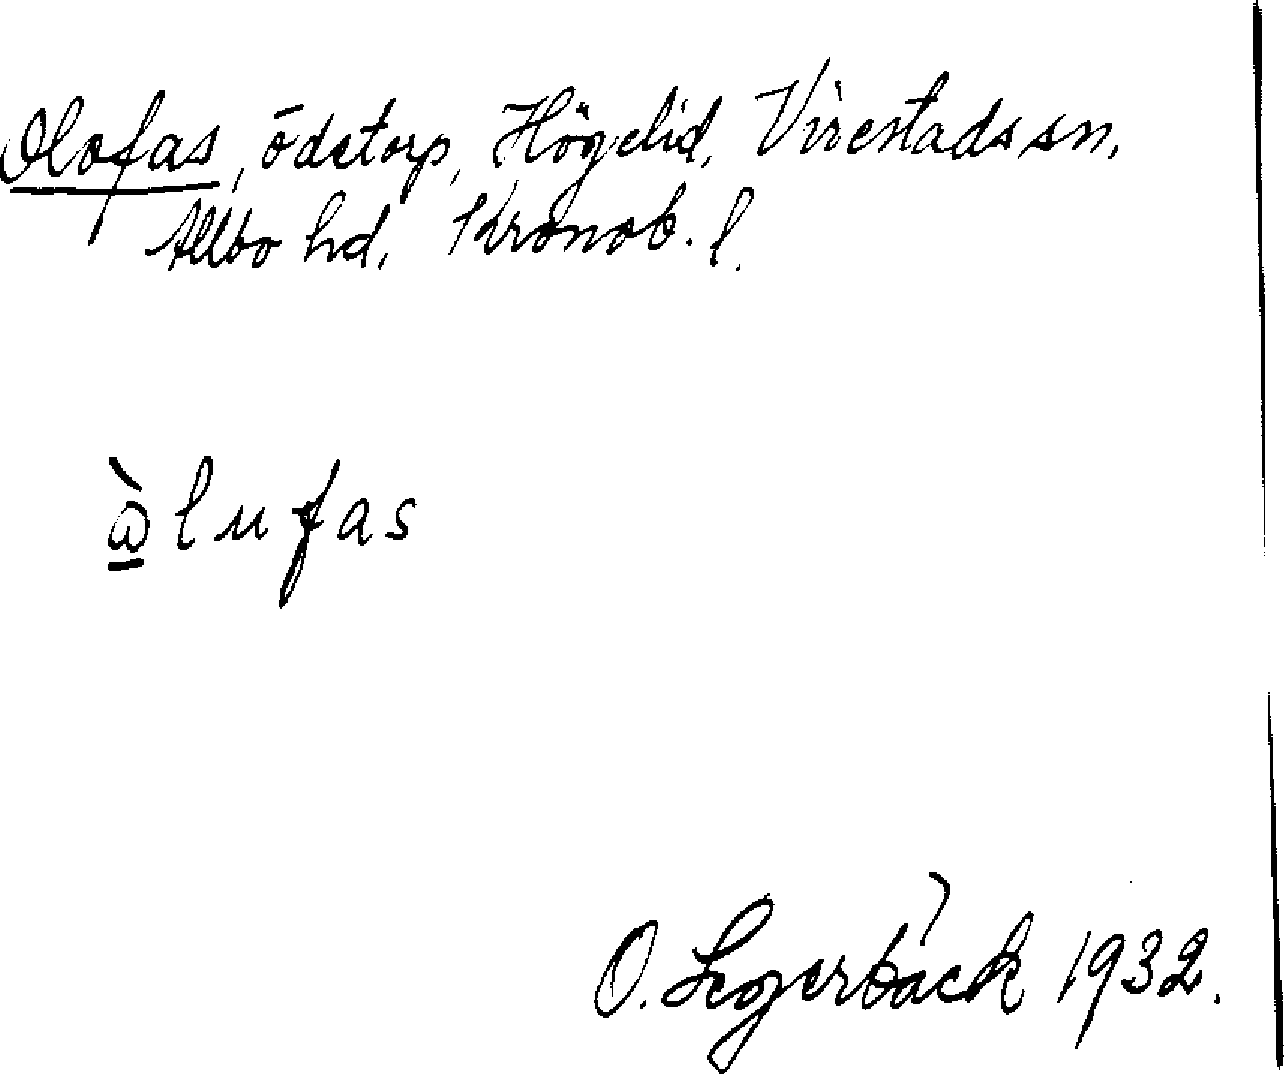 Olofas, ödetorp, Högelid, Virestads sn,
Allbo hd, Kronob. l.
ὼ̲lufas
O. Legerbäck 1932.